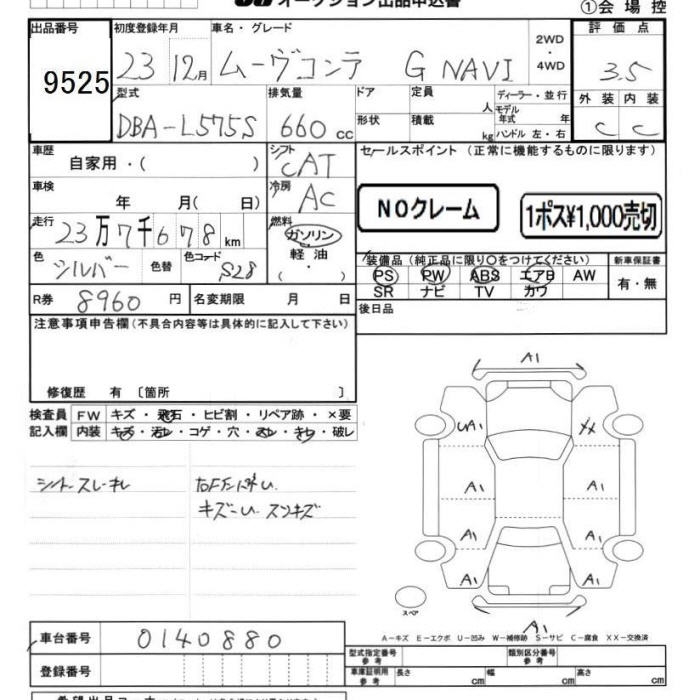 オークション出品申込書
①会場控
出品番号 初度登録年月 車名・グレード 評価点
9525 23 12月 ムーヴコンテ G NAVI 2WD・4WD 3.5
型式 排気量 ドア 定員 人 ディーラー・並行 外装 内装
DBA-L575S 660cc 形状 積載 kg モデル年式 年 ハンドル 左・右 C C
車歴 自家用・( ) シフト CAT セールスポイント (正常に機能するものに限ります)
車検 年 月( 日) 冷房 AC NOクレーム 1ポス¥1,000売切
走行 23万7千678km 燃料 ガソリン・軽油・( )
色 シルバー 色替 色コード S28 装備品 (純正品に限り〇をつけてください) 新車保証書
PS PW ABS エアB AW 有・無
R券 8960円 名変期限 月 日 SR ナビ TV カワ
後日品
注意事項申告欄(不具合内容等は具体的に記入して下さい)
修復歴 有 〔箇所 〕
検査員 FW キズ・飛石・ヒビ割・リペア跡・×要
記入欄 内装 キズ・汚レ・コゲ・穴・スレ・キレ・破レ
シートスレ・キレ
キズ
A1
UA1 XX
A1 A1
A1 A1
A1 A1
スペア
A1
A-キズ E-エクボ U-凹み W-補修跡 S-サビ C-腐食 XX-交換済
車台番号 0140880
型式指定番号 参考 類別区分番号 参考
登録番号 車庫証明用 参考 長さ cm 幅 cm 高さ cm